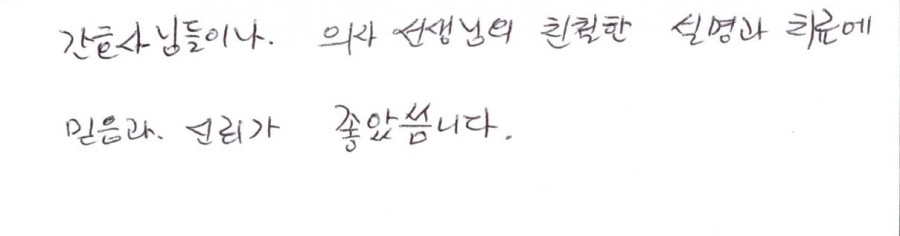 간호사님들이나. 의사 선생님의 친절한 설명과 치료에
믿음과. 신뢰가 좋았씀니다.